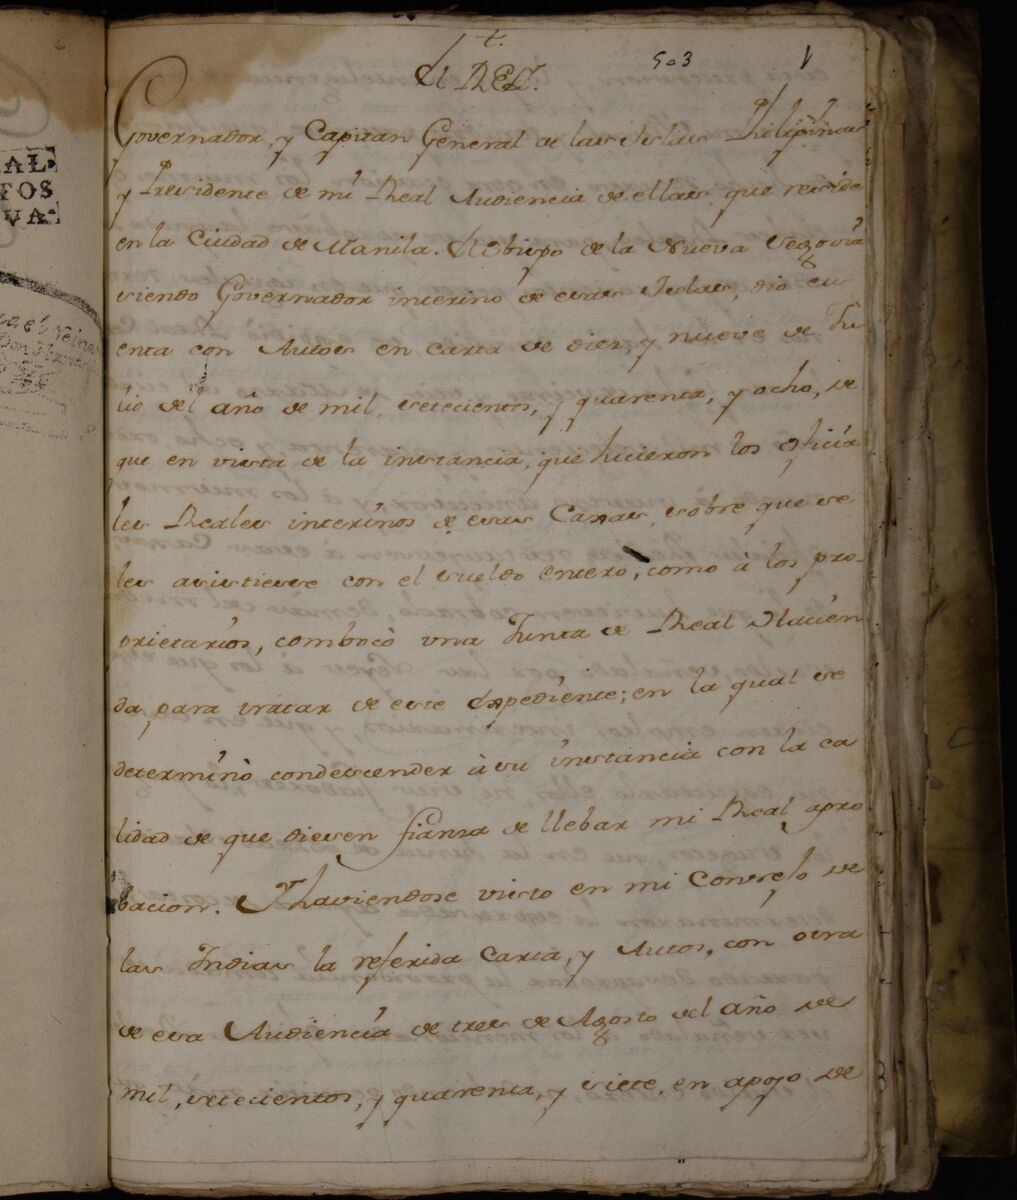 503 1
El REY.
Governador, y Capitan General de las Islas Philipinas
y Presidente de mi Real Audiencia de ellas que reside
en la Ciudad de Manila. El Obispo de la Nueva Segovia
siendo Governador interino de esas Islas, dio cu
enta con Autos en carta de diez, y nueve de Ju
lio del año de mil, setecientos, y quarenta, y ocho, de
que en vista de la instancia, que hicieron los oficia
les Reales interinos de esas Caxas, sobre que se
les asistiese con el sueldo entero, como à los pro-
prietarios, combocò una Junta de Real Hacien
da, para tratar de este Expediente; en la qual se
determinò condescender à su instancia con la ca
lidad de que diesen fianza de llebar mi Real apro
bacion. Y haviendose visto en mi Consejo de
las Indias la referida Carta, y Autos, con otra
de esa Audiencia de tres de Agosto del año de
mil, setecientos, y quarenta, y siete, en apoyo de
AL
TOS
VA